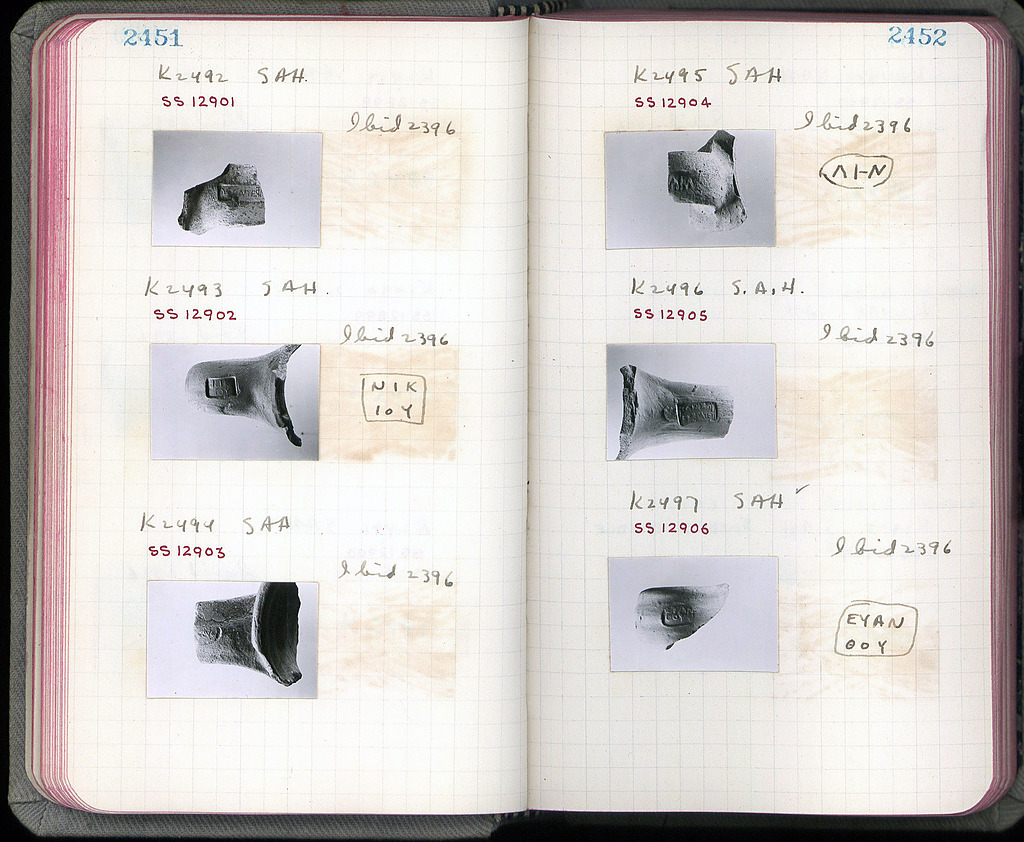 2451
K2492 SAH.
SS 12901
Ibid 2396
K2493 SAH.
SS 12902
Ibid 2396
NIK
IOY
K2494 SAH
SS 12903
Ibid 2396
2452
K2495 SAH
SS 12904
Ibid 2396
K2496 S.A.H.
SS 12905
Ibid 2396
K2497 SAH ✓
SS 12906
Ibid 2396
EYAN
ΘOY